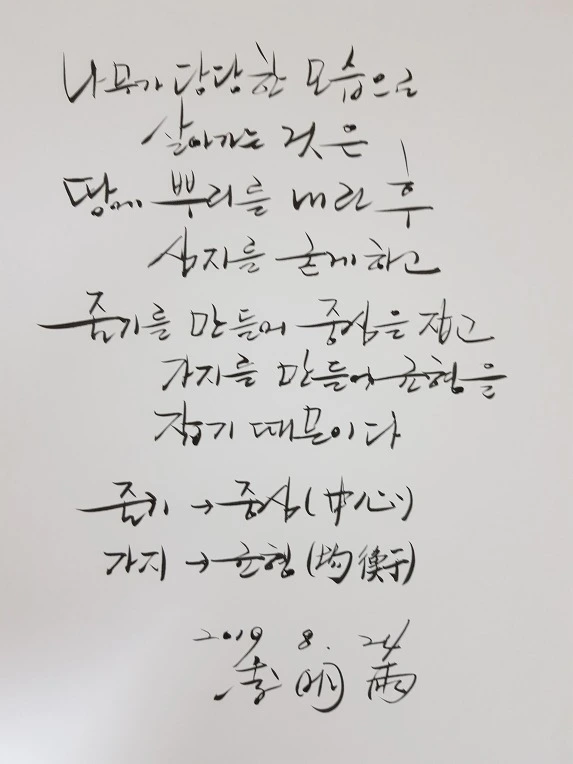 나무가 당당한 모습으로
살아가는 것은
땅에 뿌리를 내린 후
심지를 굳게하고
줄기를 만들어 중심을 잡고
가지를 만들어 균형을
잡기 때문이다
줄기 → 중심(中心)
가지 → 균형(均衡)
2019 8. 24
李 明 雨